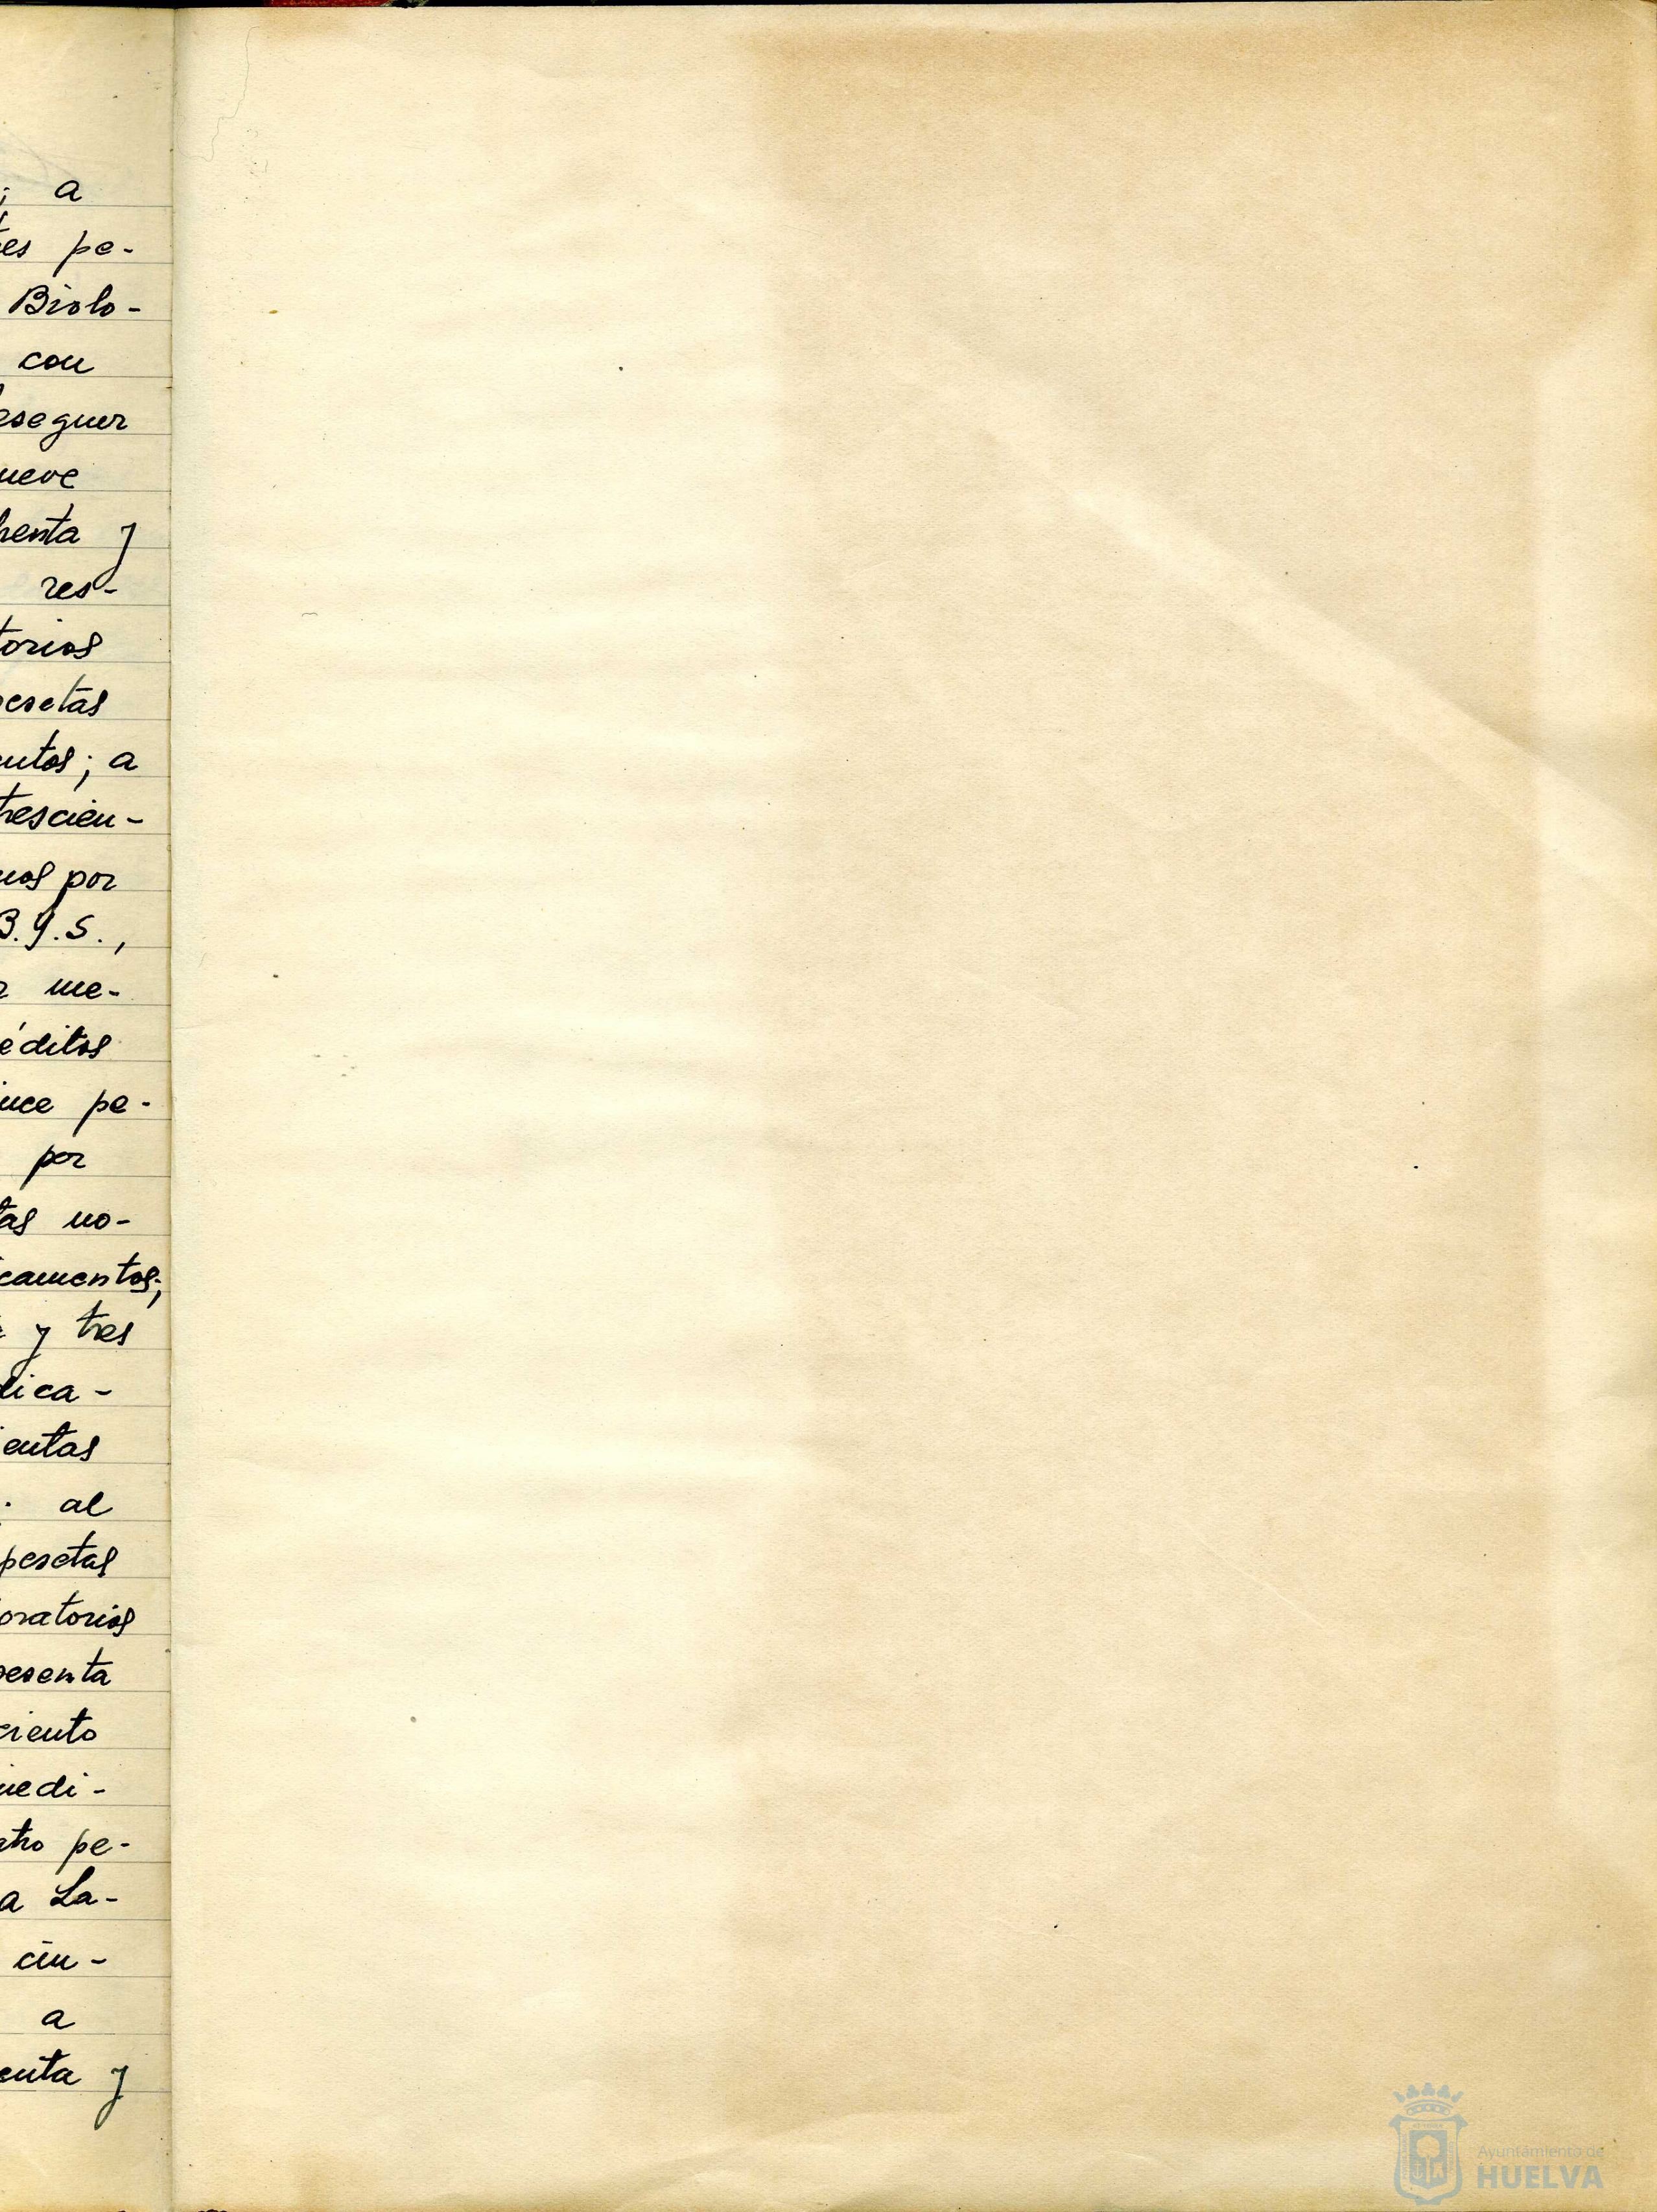 ; a
es pe-
Biolo-
con
eseguer
ueve
henta y
res-
torios
pesetas
entos; a
trescien-
nos por
B.Y.S.,
r me-
éditos
ince pe-
por
tas no-
camentos;
y tres
dica-
ientas
. al
pesetas
oratorios
sesenta
ciento
medi-
atro pe-
a La-
cin-
a
enta y
Ayuntamiento de
HUELVA